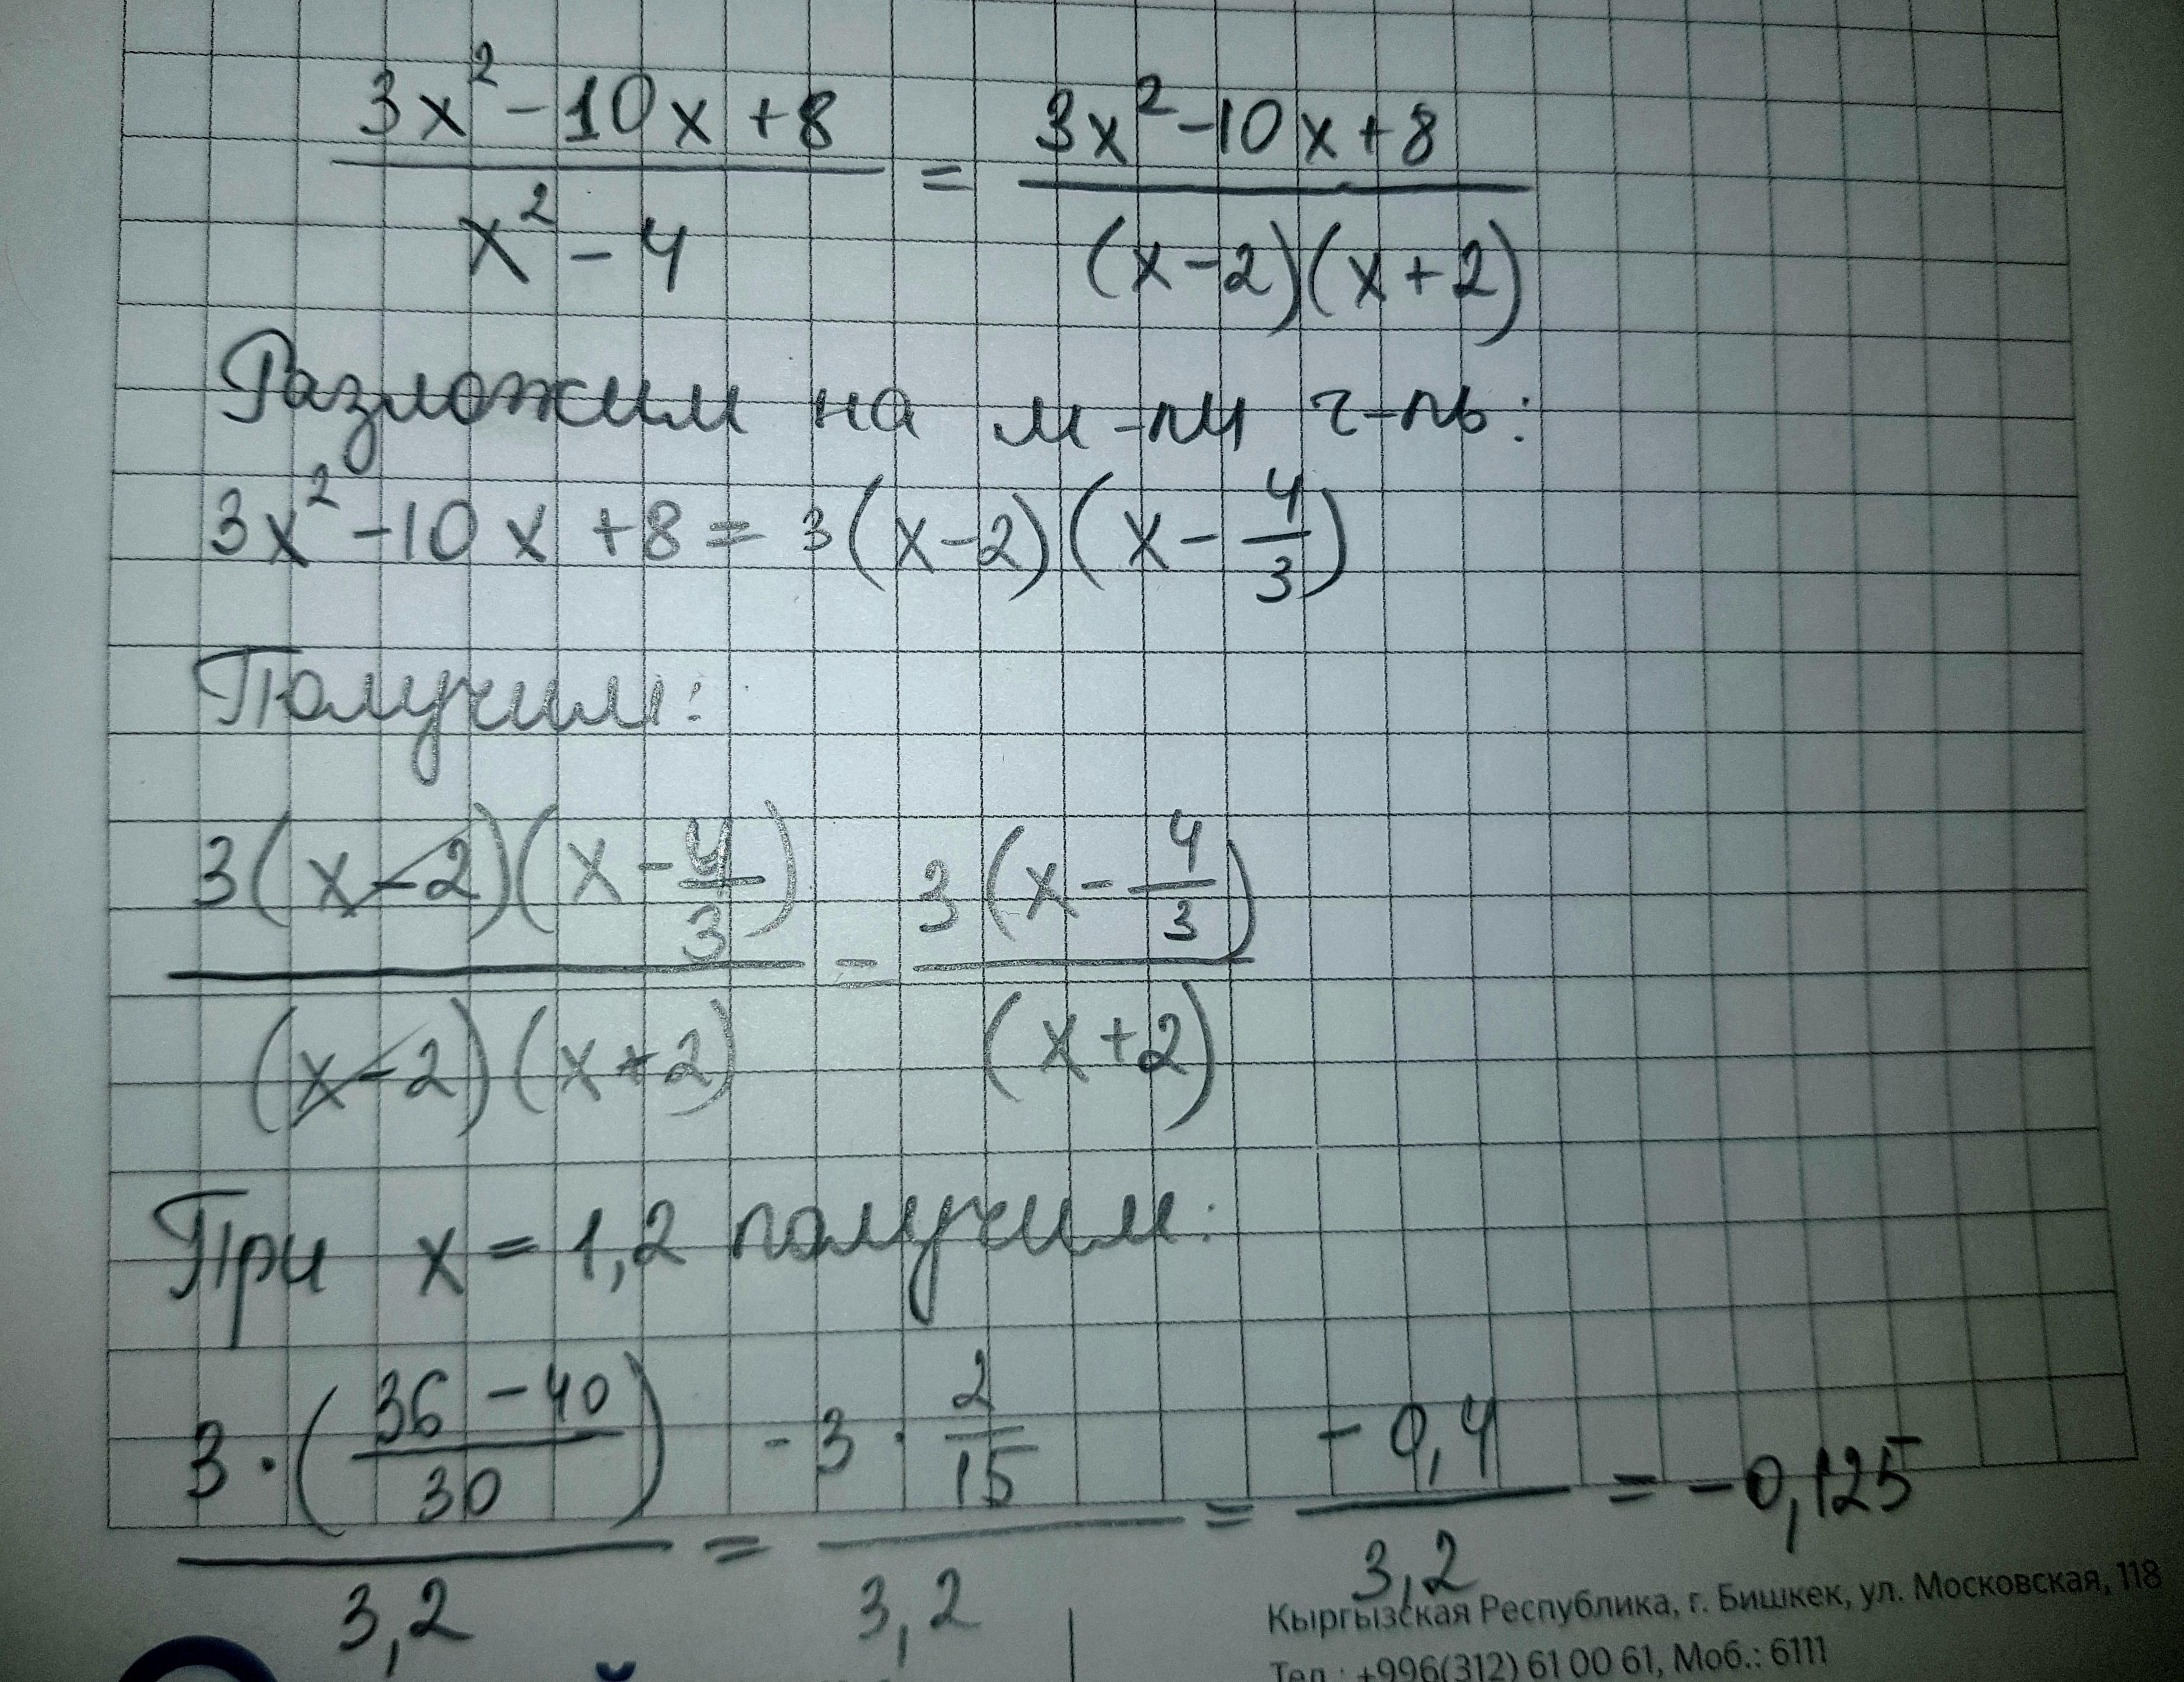 3x² - 10x + 8 / x² - 4 = 3x² - 10x + 8 / (x - 2)(x + 2)
Разложим на м-ли ч-ль:
3x² - 10x + 8 = 3(x - 2)(x - 4/3)
Получим:
3(x - 2)(x - 4/3) / (x - 2)(x + 2) = 3(x - 4/3) / (x + 2)
При x = 1,2 получим:
3 · (36 - 40 / 30) / 3,2 = -3 · 2/15 / 3,2 = -0,4 / 3,2 = -0,125
Кыргызская Республика, г. Бишкек, ул. Московская, 118
Тел.: +996(312) 61 00 61, Моб.: 6111